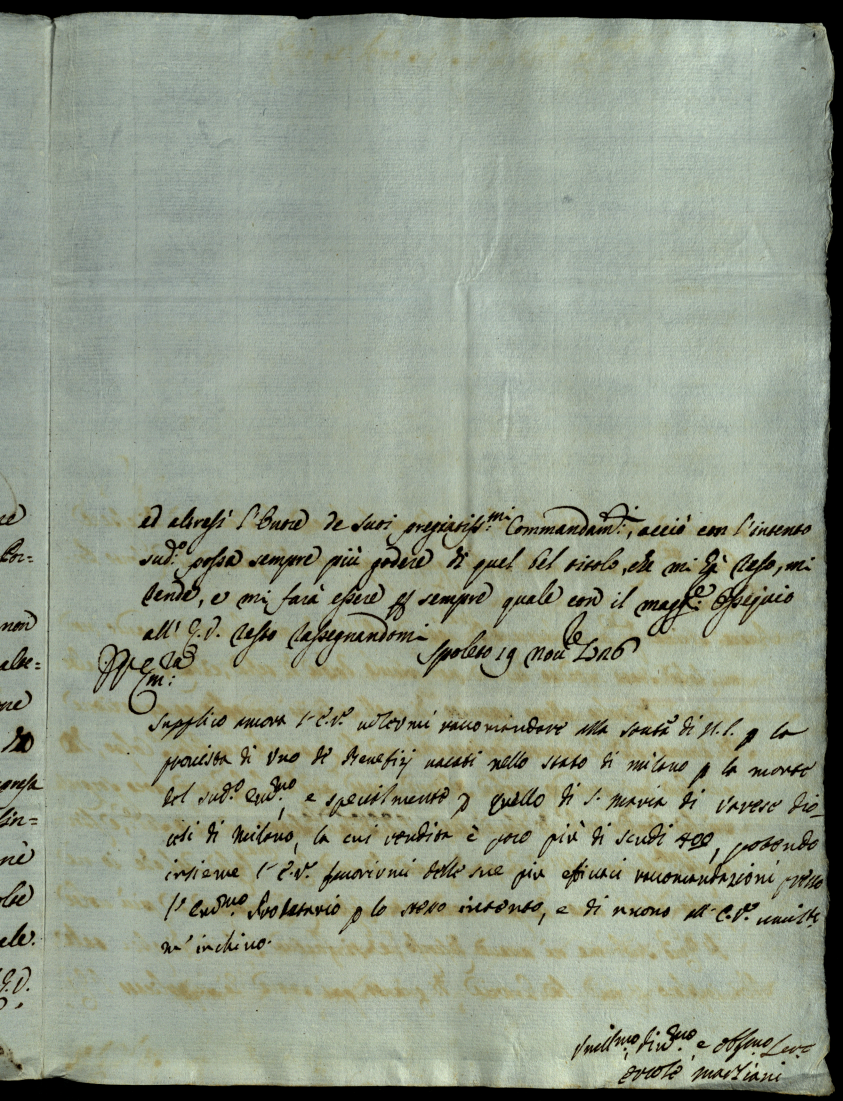 ed altresì l'onore de suoi pregiatiss.mi Commandam.ti, acciò con l'intento
sud.o possa sempre più godere di quel bel titolo, che mi hà reso, mi
rende, e mi farà essere p sempre quale con il magg.e Ossequio
all' E.V. resto rassegnandomi
Spoleto 19 nov.e 1726
Supplico ancora l'E.V. volermi raccomandare alla Santà di N.S. p la
provista di uno de Benefizij vacati nello stato di milano p la morte
del sud.o Em.mo, e specialmente p quello di S. maria di varese dio=
cesi di Milano, la cui rendita è poco più di scudi 400, potendo
insieme l'E.V. favorirmi delle sue più efficaci raccomandazioni presso
l'Em.mo Prodatario p lo stesso intento, e di nuovo all'E.V. umilte
m'inchino.
Umill.mo, Div.mo, e Obl.mo Ser.e